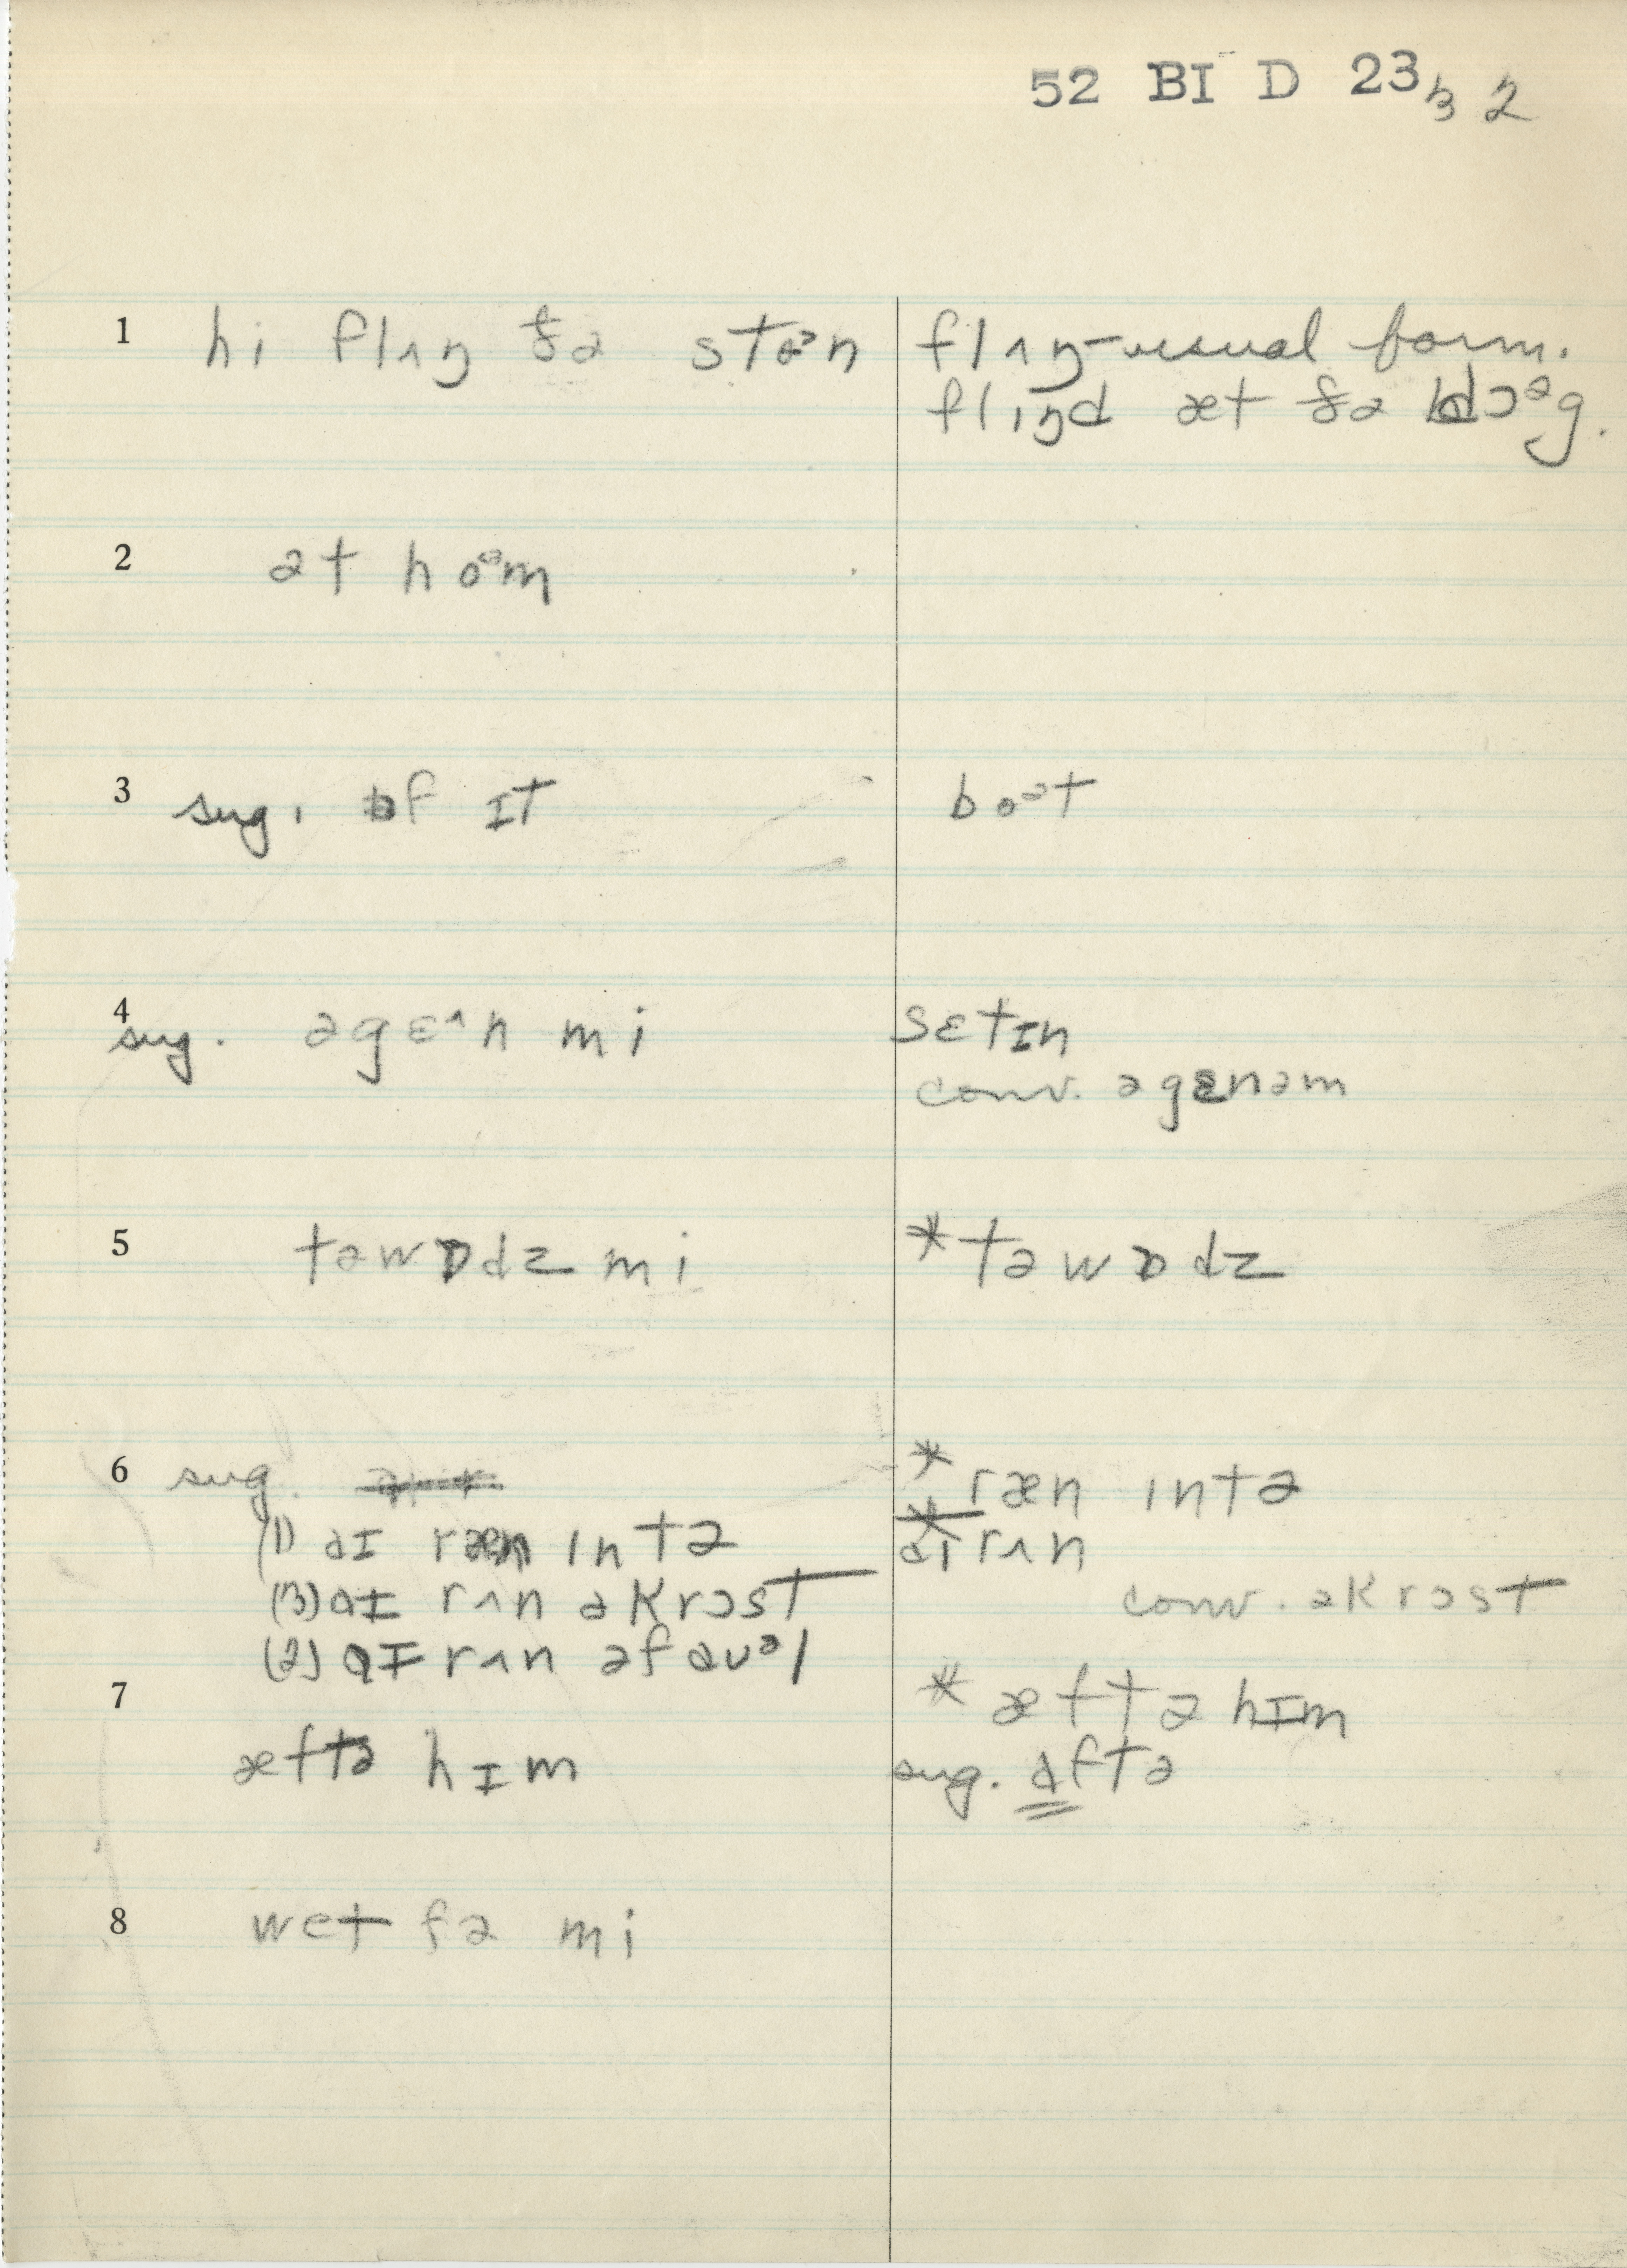 52 BI D 23 32
1 hi flʌŋ ðə stoᵊn
flʌŋ-usual form.
flɪŋd æt ðə dɔᵊg.
2 ət hoᵊm
3 sug. ɒf ɪt
boᵊt
4 sug. əgɛ^n mi
sɛtɪn
conv. əgɛnəm
5 təwɒdz mi
*təwɒdz
6 sug.
*ræn ɪntə
(1) aɪ ræn ɪntə
aɪ rʌn
(3) aɪ rʌn əkrɔst
conv. əkrɔst
(2) aɪ rʌn əf aʊᵊl
7
*æftə hɪm
æftə hɪm
sug. aftə
8 wet fə mi